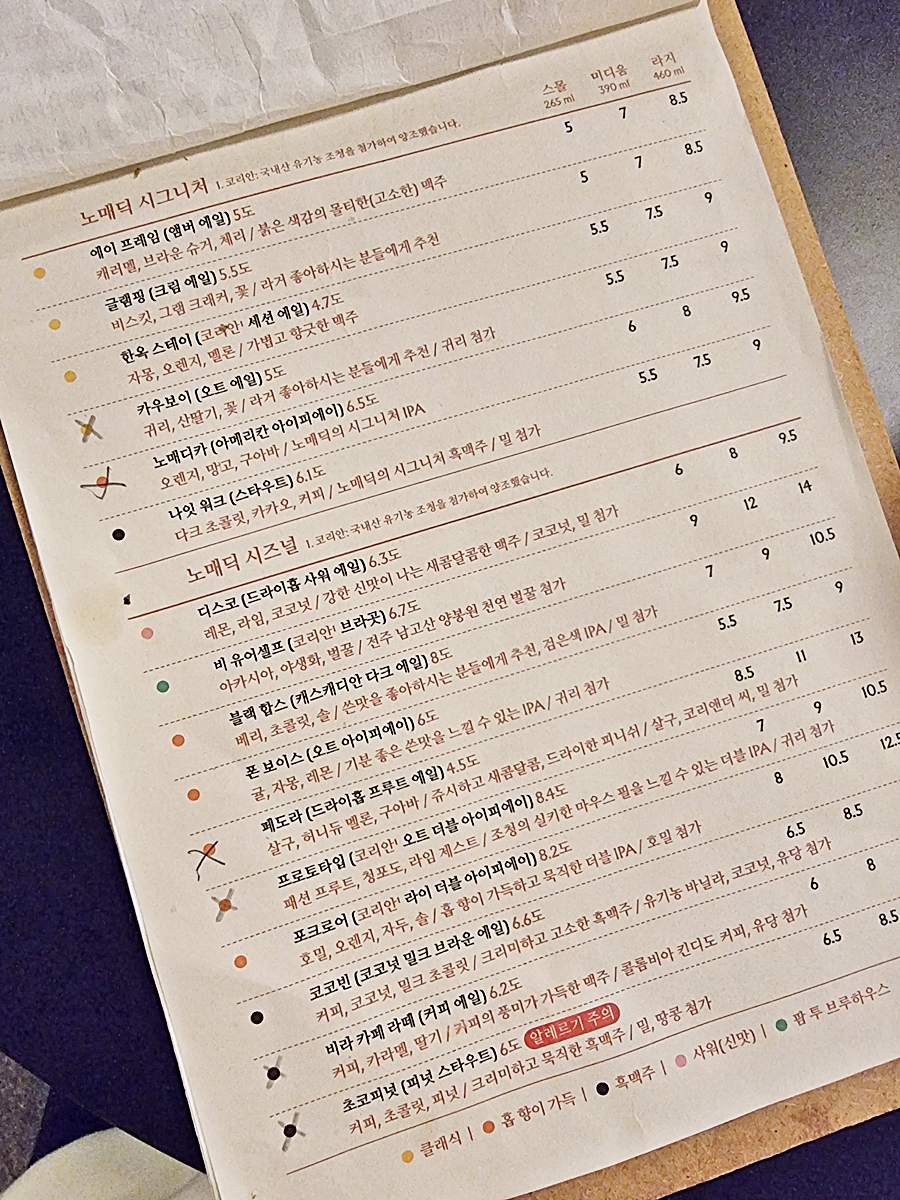 스몰 미디움 라지
265 ml 390 ml 460 ml
노매딕 시그니처 1. 코리안: 국내산 유기농 조청을 첨가하여 양조했습니다.
에이 프레임 (앰버 에일) 5도 5 7 8.5
캐러멜, 브라운 슈거, 체리 / 붉은 색감의 몰티한(고소한) 맥주
글램핑 (크림 에일) 5.5도 5 7 8.5
비스킷, 그램 크래커, 꽃 / 라거 좋아하시는 분들에게 추천
한옥 스테이 (코리안¹ 세션 에일) 4.7도 5.5 7.5 9
자몽, 오렌지, 멜론 / 가볍고 향긋한 맥주
카우보이 (오트 에일) 5도 5.5 7.5 9
귀리, 산딸기, 꽃 / 라거 좋아하시는 분들에게 추천 / 귀리 첨가
노매디카 (아메리칸 아이피에이) 6.5도 6 8 9.5
오렌지, 망고, 구아바 / 노매딕의 시그니처 IPA
나잇 워크 (스타우트) 6.1도 5.5 7.5 9
다크 초콜릿, 카카오, 커피 / 노매딕의 시그니처 흑맥주 / 밀 첨가
노매딕 시즈널 1. 코리안: 국내산 유기농 조청을 첨가하여 양조했습니다.
디스코 (드라이홉 사워 에일) 6.3도 6 8 9.5
레몬, 라임, 코코넛 / 강한 신맛이 나는 새콤달콤한 맥주 / 코코넛, 밀 첨가
비 유어셀프 (코리안¹ 브라곳) 6.7도 9 12 14
아카시아, 야생화, 벌꿀 / 전주 남고산 양봉원 천연 벌꿀 첨가
블랙 합스 (캐스캐디안 다크 에일) 8도 7 9 10.5
베리, 초콜릿, 솔 / 쓴맛을 좋아하시는 분들에게 추천, 검은색 IPA / 밀 첨가
폰 보이스 (오트 아이피에이) 6도 5.5 7.5 9
귤, 자몽, 레몬 / 기분 좋은 쓴맛을 느낄 수 있는 IPA / 귀리 첨가
페도라 (드라이홉 프루트 에일) 4.5도 8.5 11 13
살구, 허니듀 멜론, 구아바 / 쥬시하고 새콤달콤, 드라이한 피니쉬 / 살구, 코리앤더 씨, 밀 첨가
프로토타입 (코리안¹ 오트 더블 아이피에이) 8.4도 7 9 10.5
패션 프루트, 청포도, 라임 제스트 / 조청의 실키한 마우스 필을 느낄 수 있는 더블 IPA / 귀리 첨가
포크로어 (코리안¹ 라이 더블 아이피에이) 8.2도 8 10.5 12.5
호밀, 오렌지, 자두, 솔 / 홉 향이 가득하고 묵직한 더블 IPA / 호밀 첨가
코코빈 (코코넛 밀크 브라운 에일) 6.6도 6.5 8.5
커피, 코코넛, 밀크 초콜릿 / 크리미하고 고소한 흑맥주 / 유기농 바닐라, 코코넛, 유당 첨가
비라 카페 라떼 (커피 에일) 6.2도 6 8
커피, 카라멜, 딸기 / 커피의 풍미가 가득한 맥주 / 콜롬비아 킨디도 커피, 유당 첨가
초코피넛 (피넛 스타우트) 6도 알레르기 주의 6.5 8.5
커피, 초콜릿, 피넛 / 크리미하고 묵직한 흑맥주 / 밀, 땅콩 첨가
클래식 | 홉 향이 가득 | 흑맥주 | 사워(신맛) | 팜 투 브루하우스